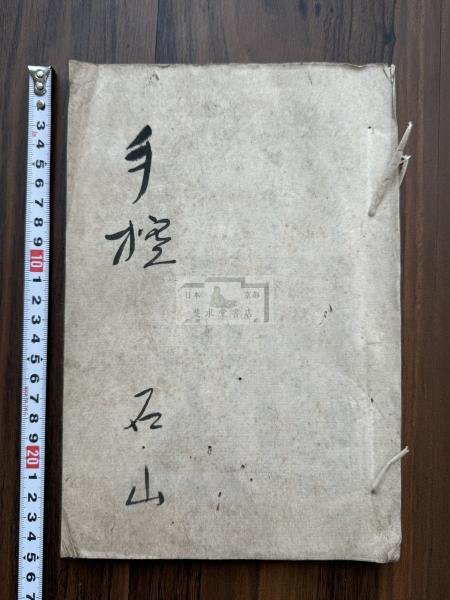 手控
石山
日本 京都
斐求堂書店
2 3 4 5 6 7 8 9 10 1 2 3 4 5 6 7 8 9 20 1 2 3 4 5 6 7